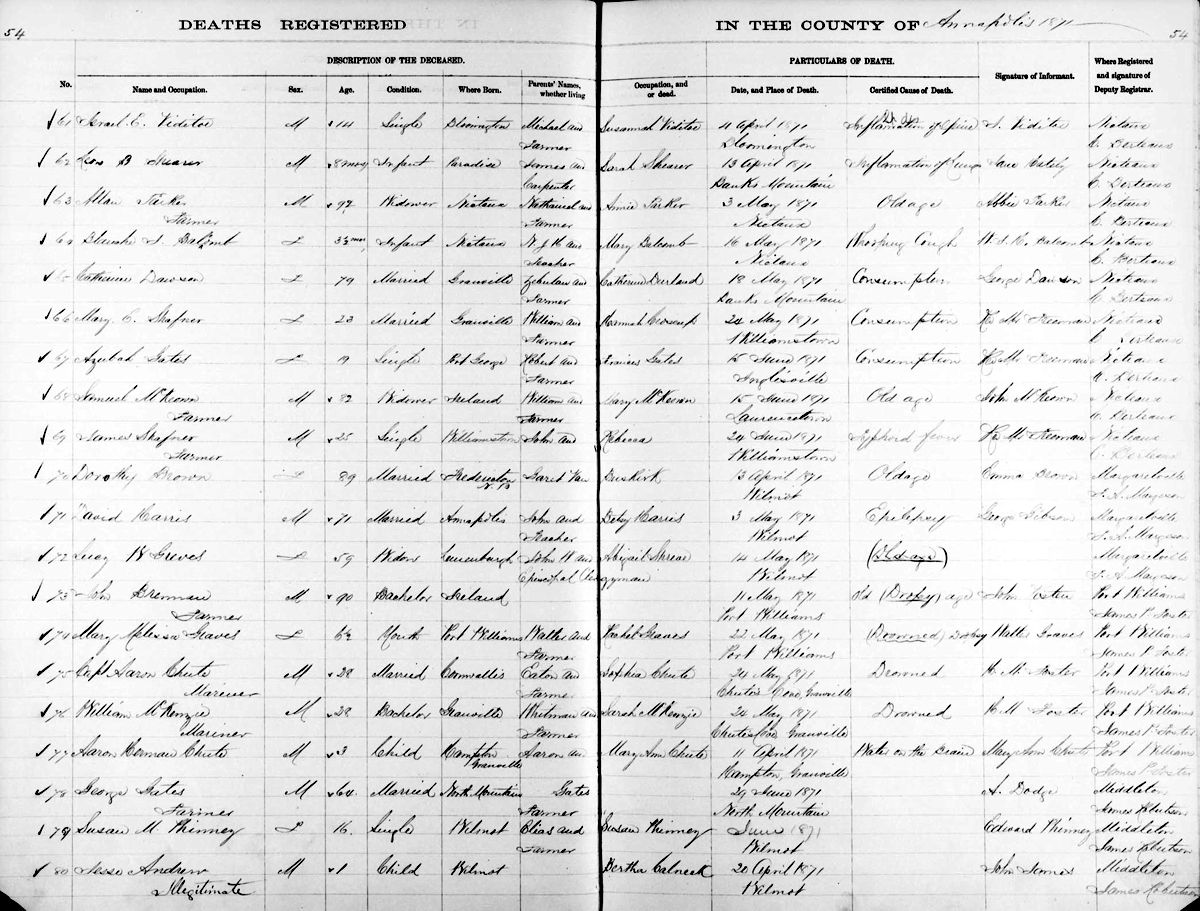 54
DEATHS REGISTERED
IN THE COUNTY OF Annapolis 1871
54
DESCRIPTION OF THE DECEASED.
PARTICULARS OF DEATH.
No. Name and Occupation. Sex. Age. Condition. Where Born. Parents' Names, whether living Occupation, and or dead. Date, and Place of Death. Certified Cause of Death. Signature of Informant. Where Registered and signature of Deputy Registrar.
61 Israel E. Viditoe M 14 Single Bloomington Michael and Susannah Viditoe 4 April 1871 Inflamation of Spine Viditoe Nictaux
Farmer Bloomington C. Berteaux
62 B Shearer M 8 mos Infant Paradise James and Sarah Shearer 13 April 1871 Inflamation of Lungs Nictaux
Carpenter Hanks Mountain C. Berteaux
63 Allan Parker M Widower Nictaux Nathaniel and Annie Parker 3 May 1871 Old age Abbie Parker Nictaux
Farmer Farmer Nictaux C. Berteaux
64 Infant Nictaux Mary Balcomb 16 May 1871 Whooping Cough Balcomb Nictaux
Nictaux C. Berteaux
65 Catherine Dawson 79 Married Granville Zebulan and Catherine Durland 18 May 1871 Consumption George Dawson Nictaux
Farmer Hanks Mountain C. Berteaux
66 Mary E. Shafner 23 Married Granville William and Hannah 24 May 1871 Consumption Freeman Nictaux
Farmer Williamstown C. Berteaux
67 Azubah Gates 19 Single Port George Robert and Gates 15 June 1871 Consumption Freeman Nictaux
Farmer Inglisville C. Berteaux
68 Samuel McKeown M 82 Widower Ireland William and Mary McKeown 15 June 1871 Old age John McKeown Nictaux
Farmer Farmer Laurencetown C. Berteaux
69 James Shafner M 25 Single Williamstown John and Rebecca 24 June 1871 Typhord fever Freeman Nictaux
Farmer Williamstown C. Berteaux
70 Dorothy Brown 89 Married Fredericton N.B Garet Van Buskirk 13 April 1871 Old age Emma Brown Margaretville
Wilmot
71 David Harris M 71 Married Annapolis John and Betsy Harris 3 May 1871 Epilepsy George Gibson Margaretville
Teacher Wilmot
72 Lucy W Greves 59 Widow Lunenburgh John W and Abigail 14 May 1871 (Old age) Margaretville
Episcopal Clergyman Wilmot
73 John Brennan M 90 Bachelor Ireland 11 May 1871 Old (Dropsy) age John Foster Port Williams
Farmer Port Williams James P. Foster
74 Mary Melissa Graves 6½ Youth Port Williams Walter and Rachel Graves 22 May 1871 (Drowned) Dropsy Walter Graves Port Williams
Farmer Port Williams James P. Foster
75 Capt Aaron Chute M 28 Married Cornwallis Eaton and Sophia Chute 24 May 1871 Drowned H. M. Foster Port Williams
Mariner Farmer Chutes Cove, Granville James P. Foster
76 William McKenzie M 28 Bachelor Granville Whitman and Sarah McKenzie 24 May 1871 Drowned H. M. Foster Port Williams
Mariner Farmer Chutes Cove Granville James P. Foster
77 Aaron Herman Chute M 3 Child Hampton Granville Aaron and Mary Ann Chute 11 April 1871 Water on the Brain Mary Ann Chute Port Williams
Hampton, Granville James P. Foster
78 George Gates M 64 Married North Mountain Gates 29 June 1871 A. Dodge Middleton
Farmer Farmer North Mountain James Robertson
79 Susan M Phinney 16 Single Wilmot Elias and Susan Phinney June 1871 Edward Phinney Middleton
Farmer Wilmot James Robertson
80 Jesse Andrew M 1 Child Wilmot Bertha Calneek 20 April 1871 John James Middleton
Illegitimate Wilmot James Robertson